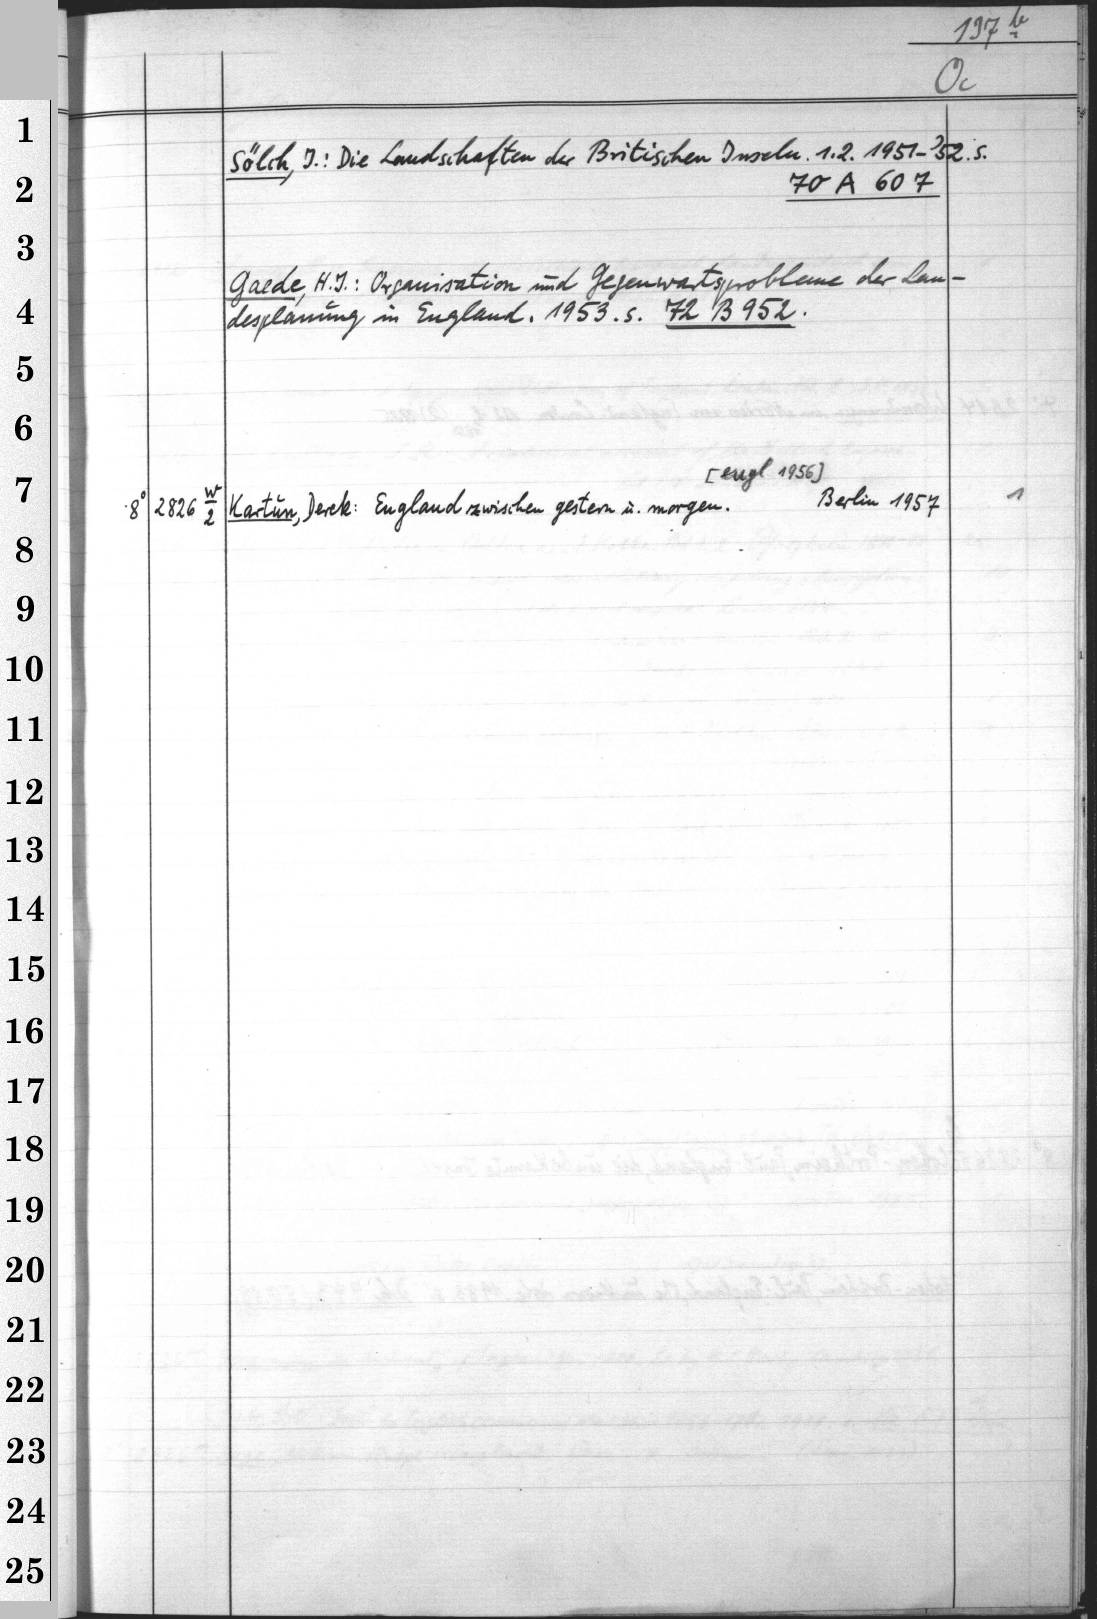 197 b
Oc
Sölch, J.: Die Landschaften der Britischen Inseln. 1.2. 1951-52. s.
70 A 607
Gaede, H.J.: Organisation und Gegenwartsprobleme der Lan-
desplanung in England. 1953. s. 72 B 952.
[engl 1956]
8° 2826 w/2 Kartun, Derek: England zwischen gestern u. morgen. Berlin 1957 1
1
2
3
4
5
6
7
8
9
10
11
12
13
14
15
16
17
18
19
20
21
22
23
24
25